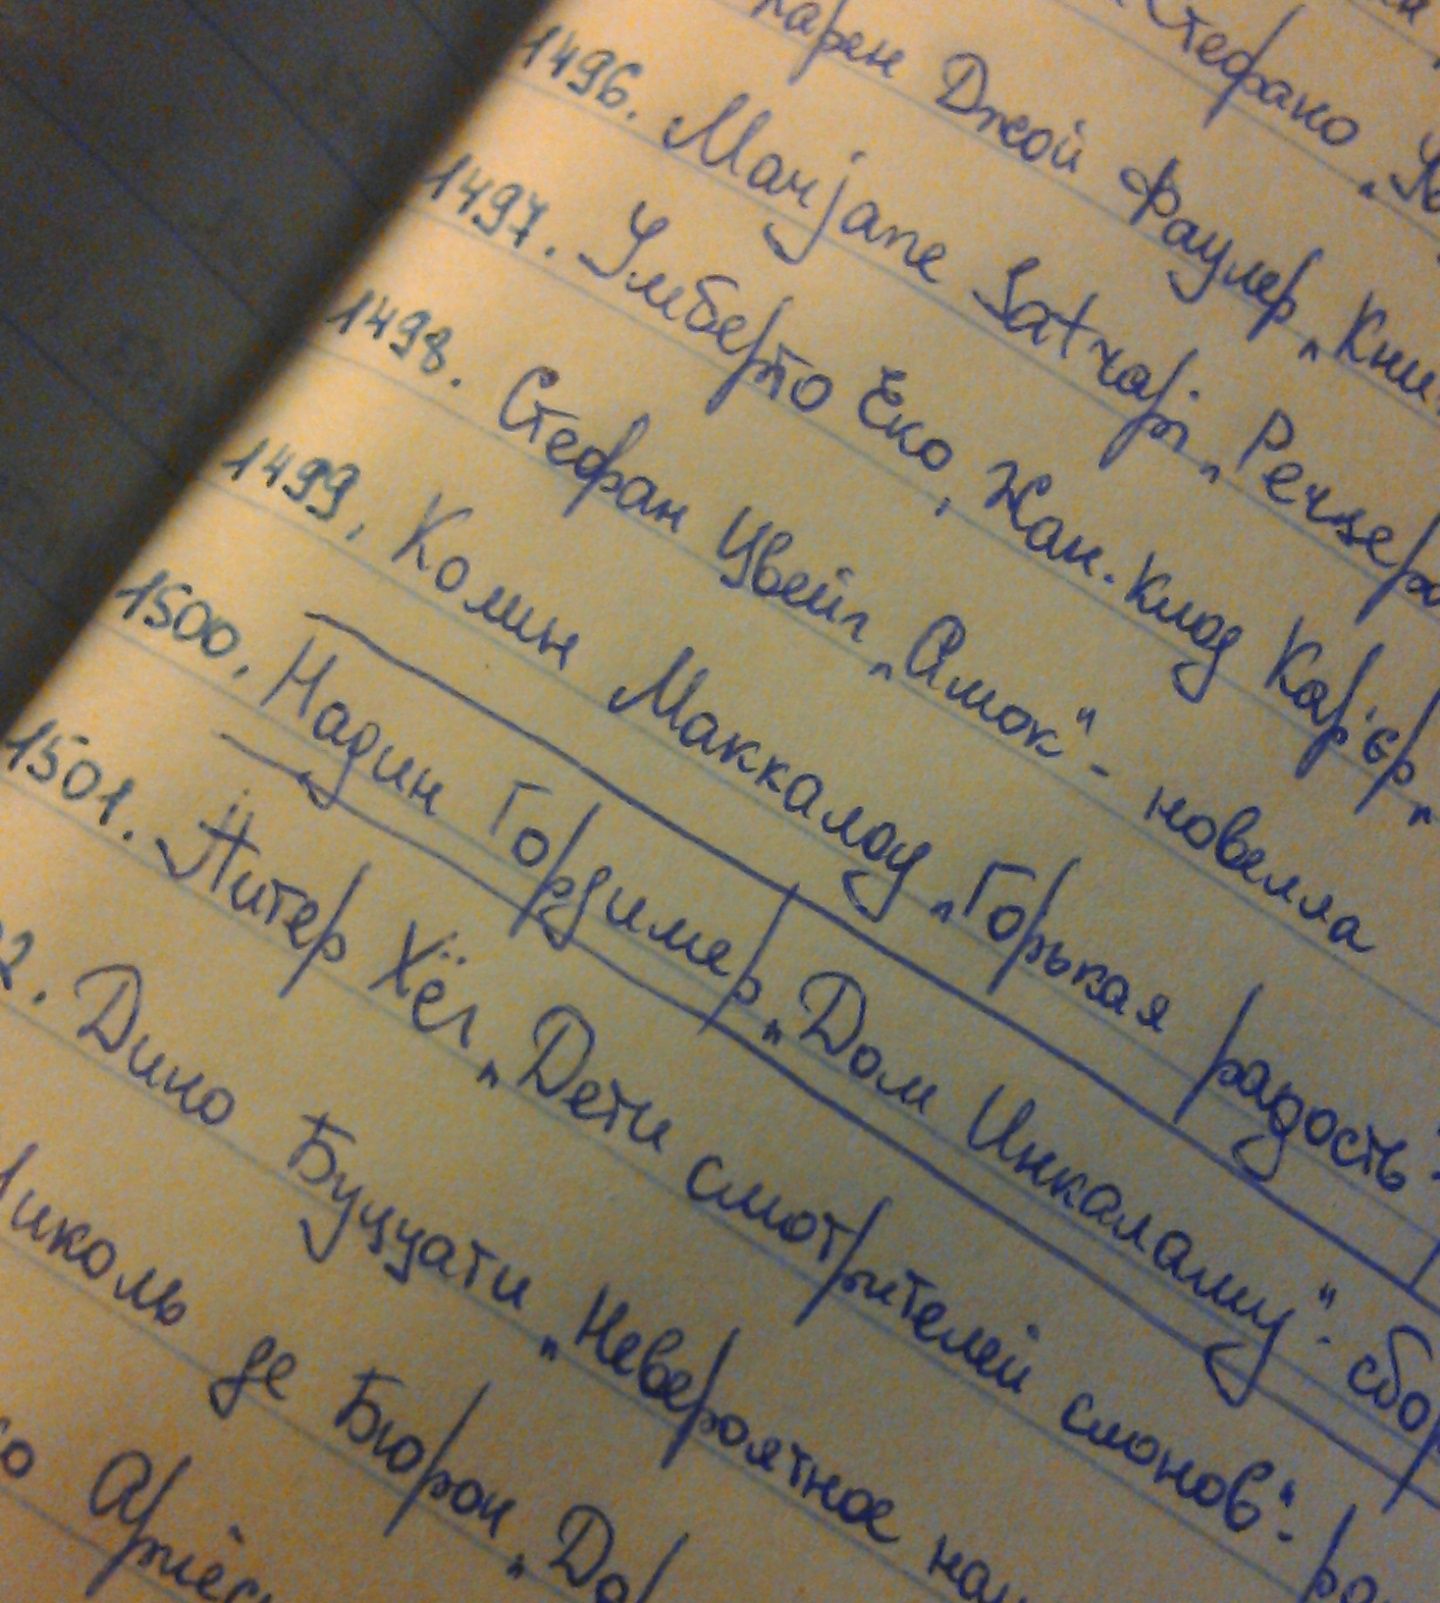 Стефано
Карен Джой Фаулер „Кни
1496. Marjane Satrapi „Persepo
1497. Умберто Еко, Жан-Клод Кар'єр „
1498. Стефан Цвейг „Амок" - новелла
1499. Колин Маккалоу „Горькая радость"
1500. Надин Гордимер „Дом Инкаламу" - сбор
1501. Питер Хёг „Дети смотрителей слонов" - ро
2. Дино Буццати „Невероятное на
Николь де Бюрон „До